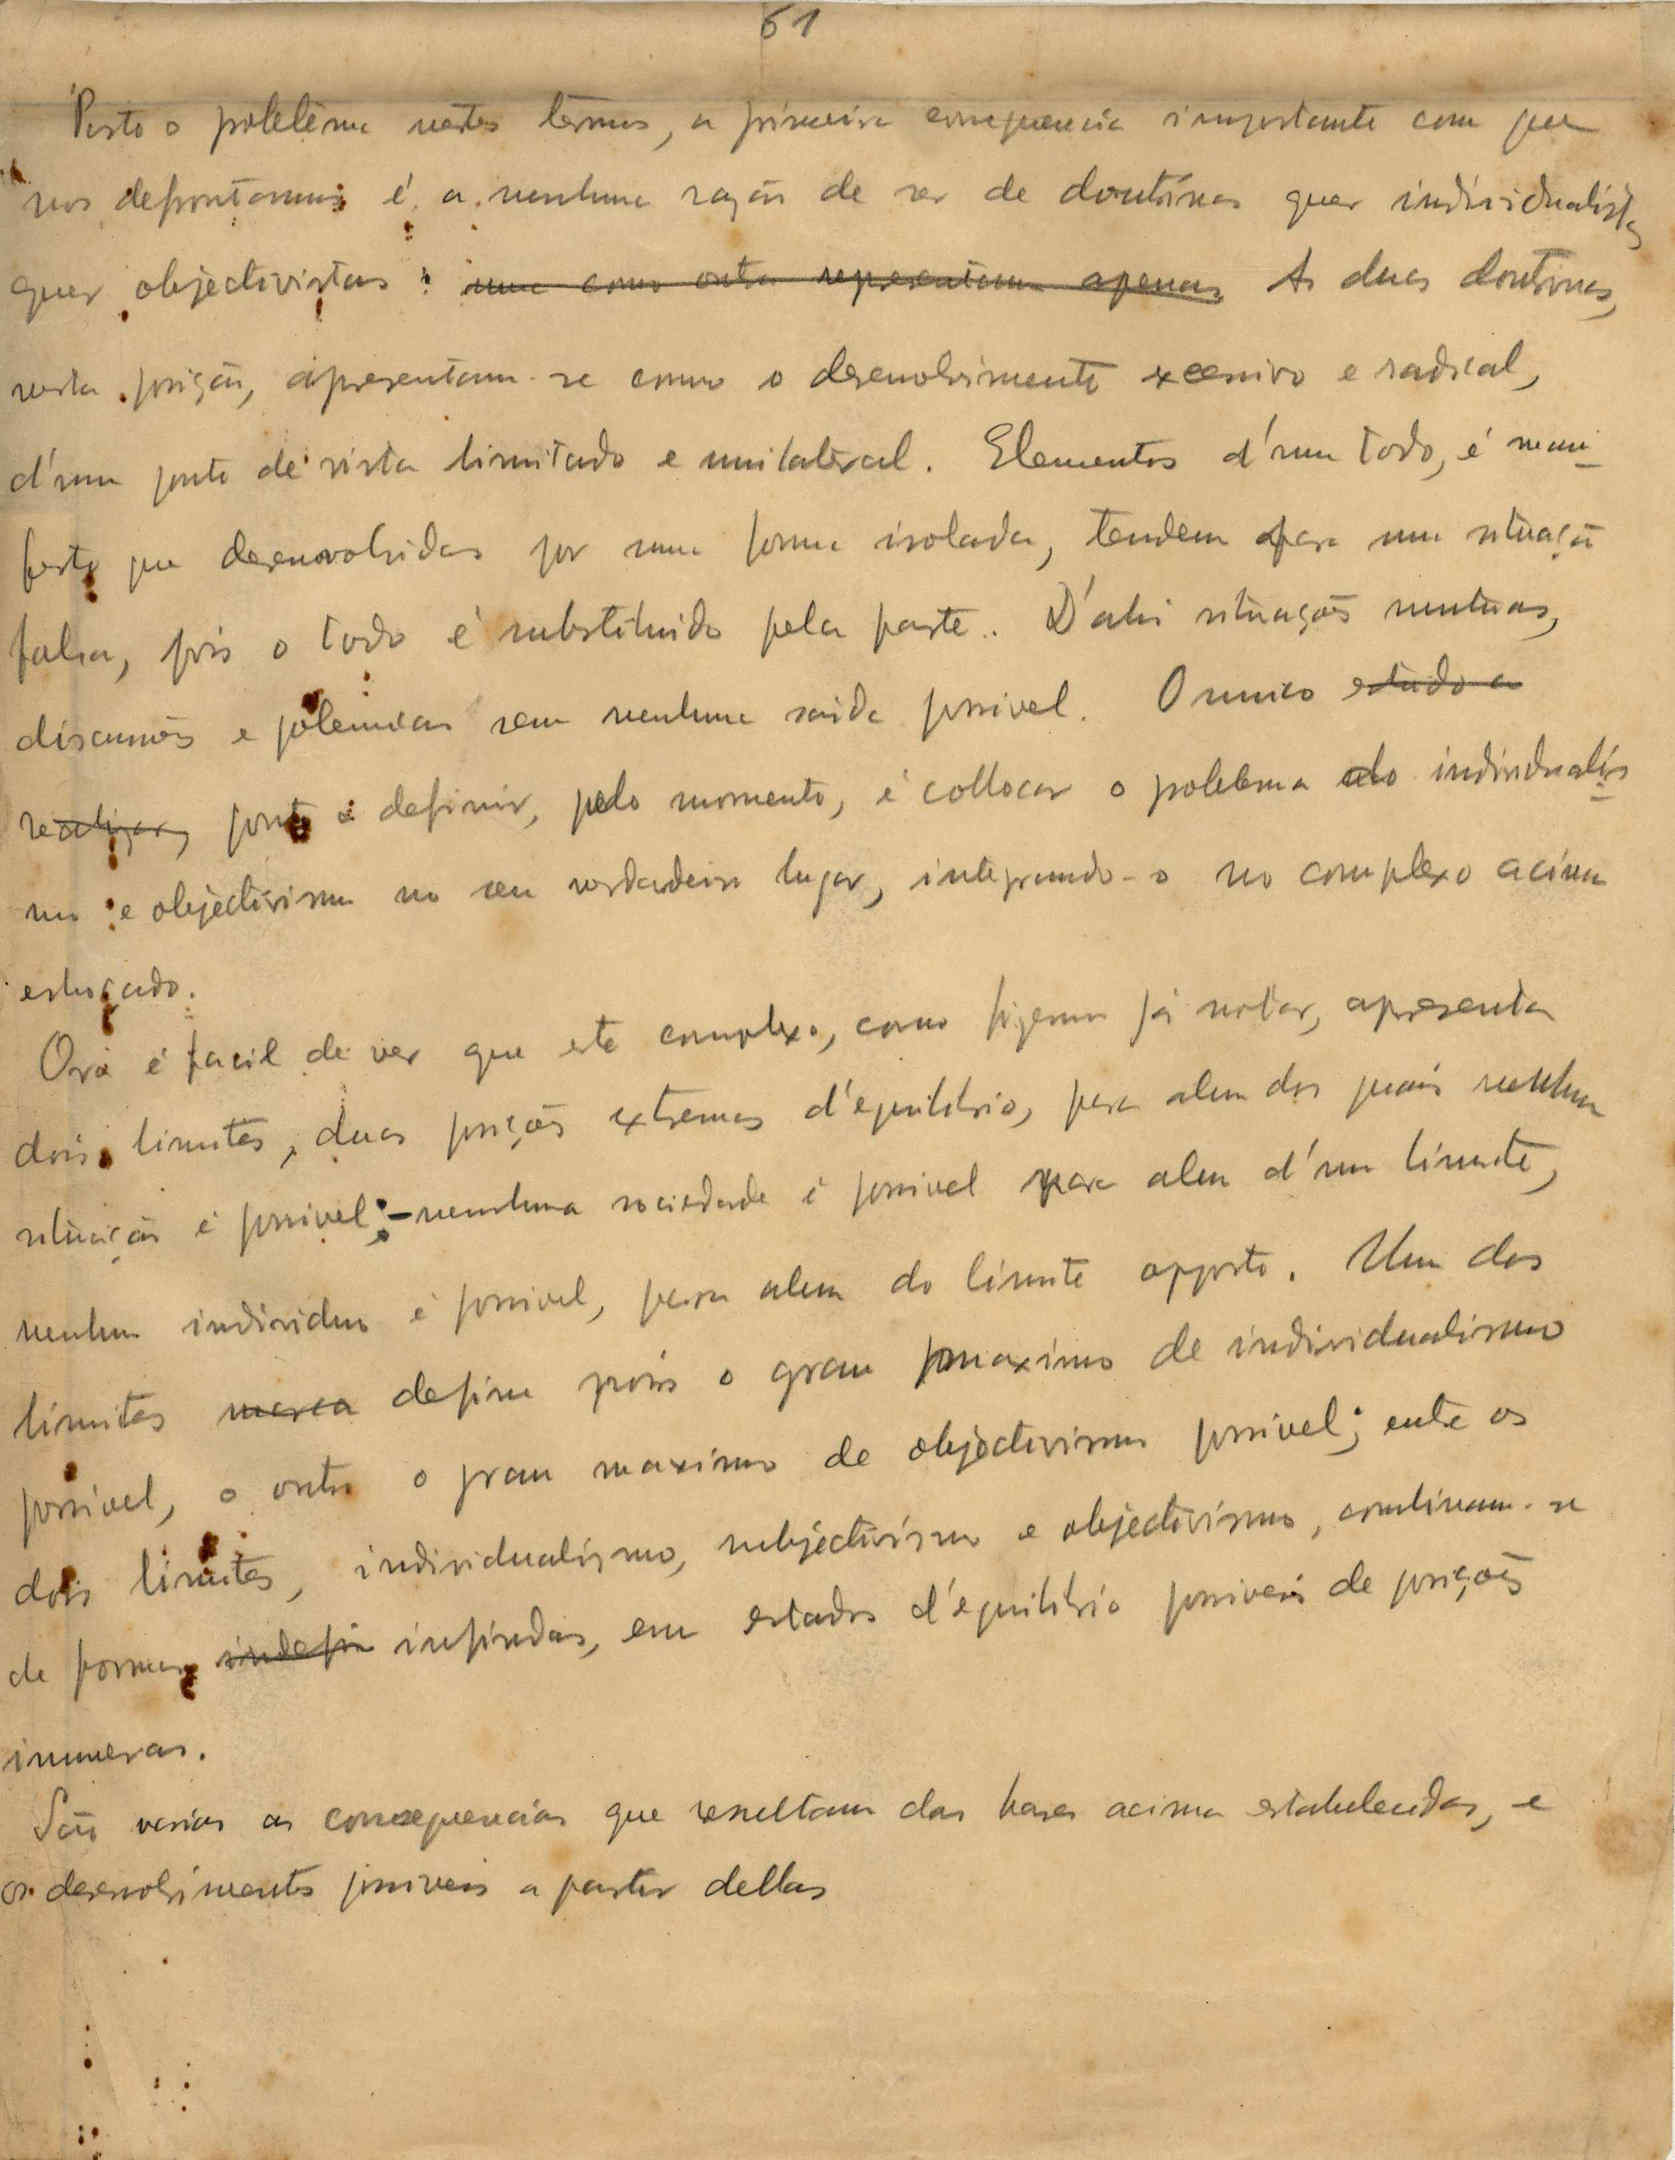 61
Posto o problema nestes termos, a primeira consequencia importante com que
nos defrontamos é a nenhuma razão de ser de doutrinas quer individualistas
quer objectivistas: uma como outra representam apenas As duas doutrinas,
nesta posição, apresentam-se como o desenvolvimento excessivo e radical,
d'um ponto de vista limitado e unilateral. Elementos d'um todo, é mani-
festo que desenvolvidas por uma forma isolada, tendem para uma situação
falsa, pois o todo é substituido pela parte. D'ahi situações mutuas,
discussões e polemicas sem nenhuma saida possivel. O unico estudo a
realizar, ponto a definir, pelo momento, é collocar o problema do individualis-
mo e objectivismo no seu verdadeiro lugar, integrando-o no complexo acima
esboçado.
Ora é facil de ver que este complexo, como fizemos já notar, apresenta
dois limites, duas posições extremas d'equilibrio, para alem das quais nenhuma
situação é possivel; - nenhuma sociedade é possivel para alem d'um limite,
nenhum individuo é possivel, para alem do limite opposto. Um dos
limites marca define pois o grau maximo de individualismo
possivel, o outro o grau maximo de objectivismo possivel; entre os
dois limites, individualismo, subjectivismo e objectivismo, combinam-se
de formas indefin infindas, em estados d'equilibrio possiveis de posições
inumeras.
São varias as consequencias que resultam das bases acima estabelecidas, e
os desenvolvimentos possiveis a partir dellas